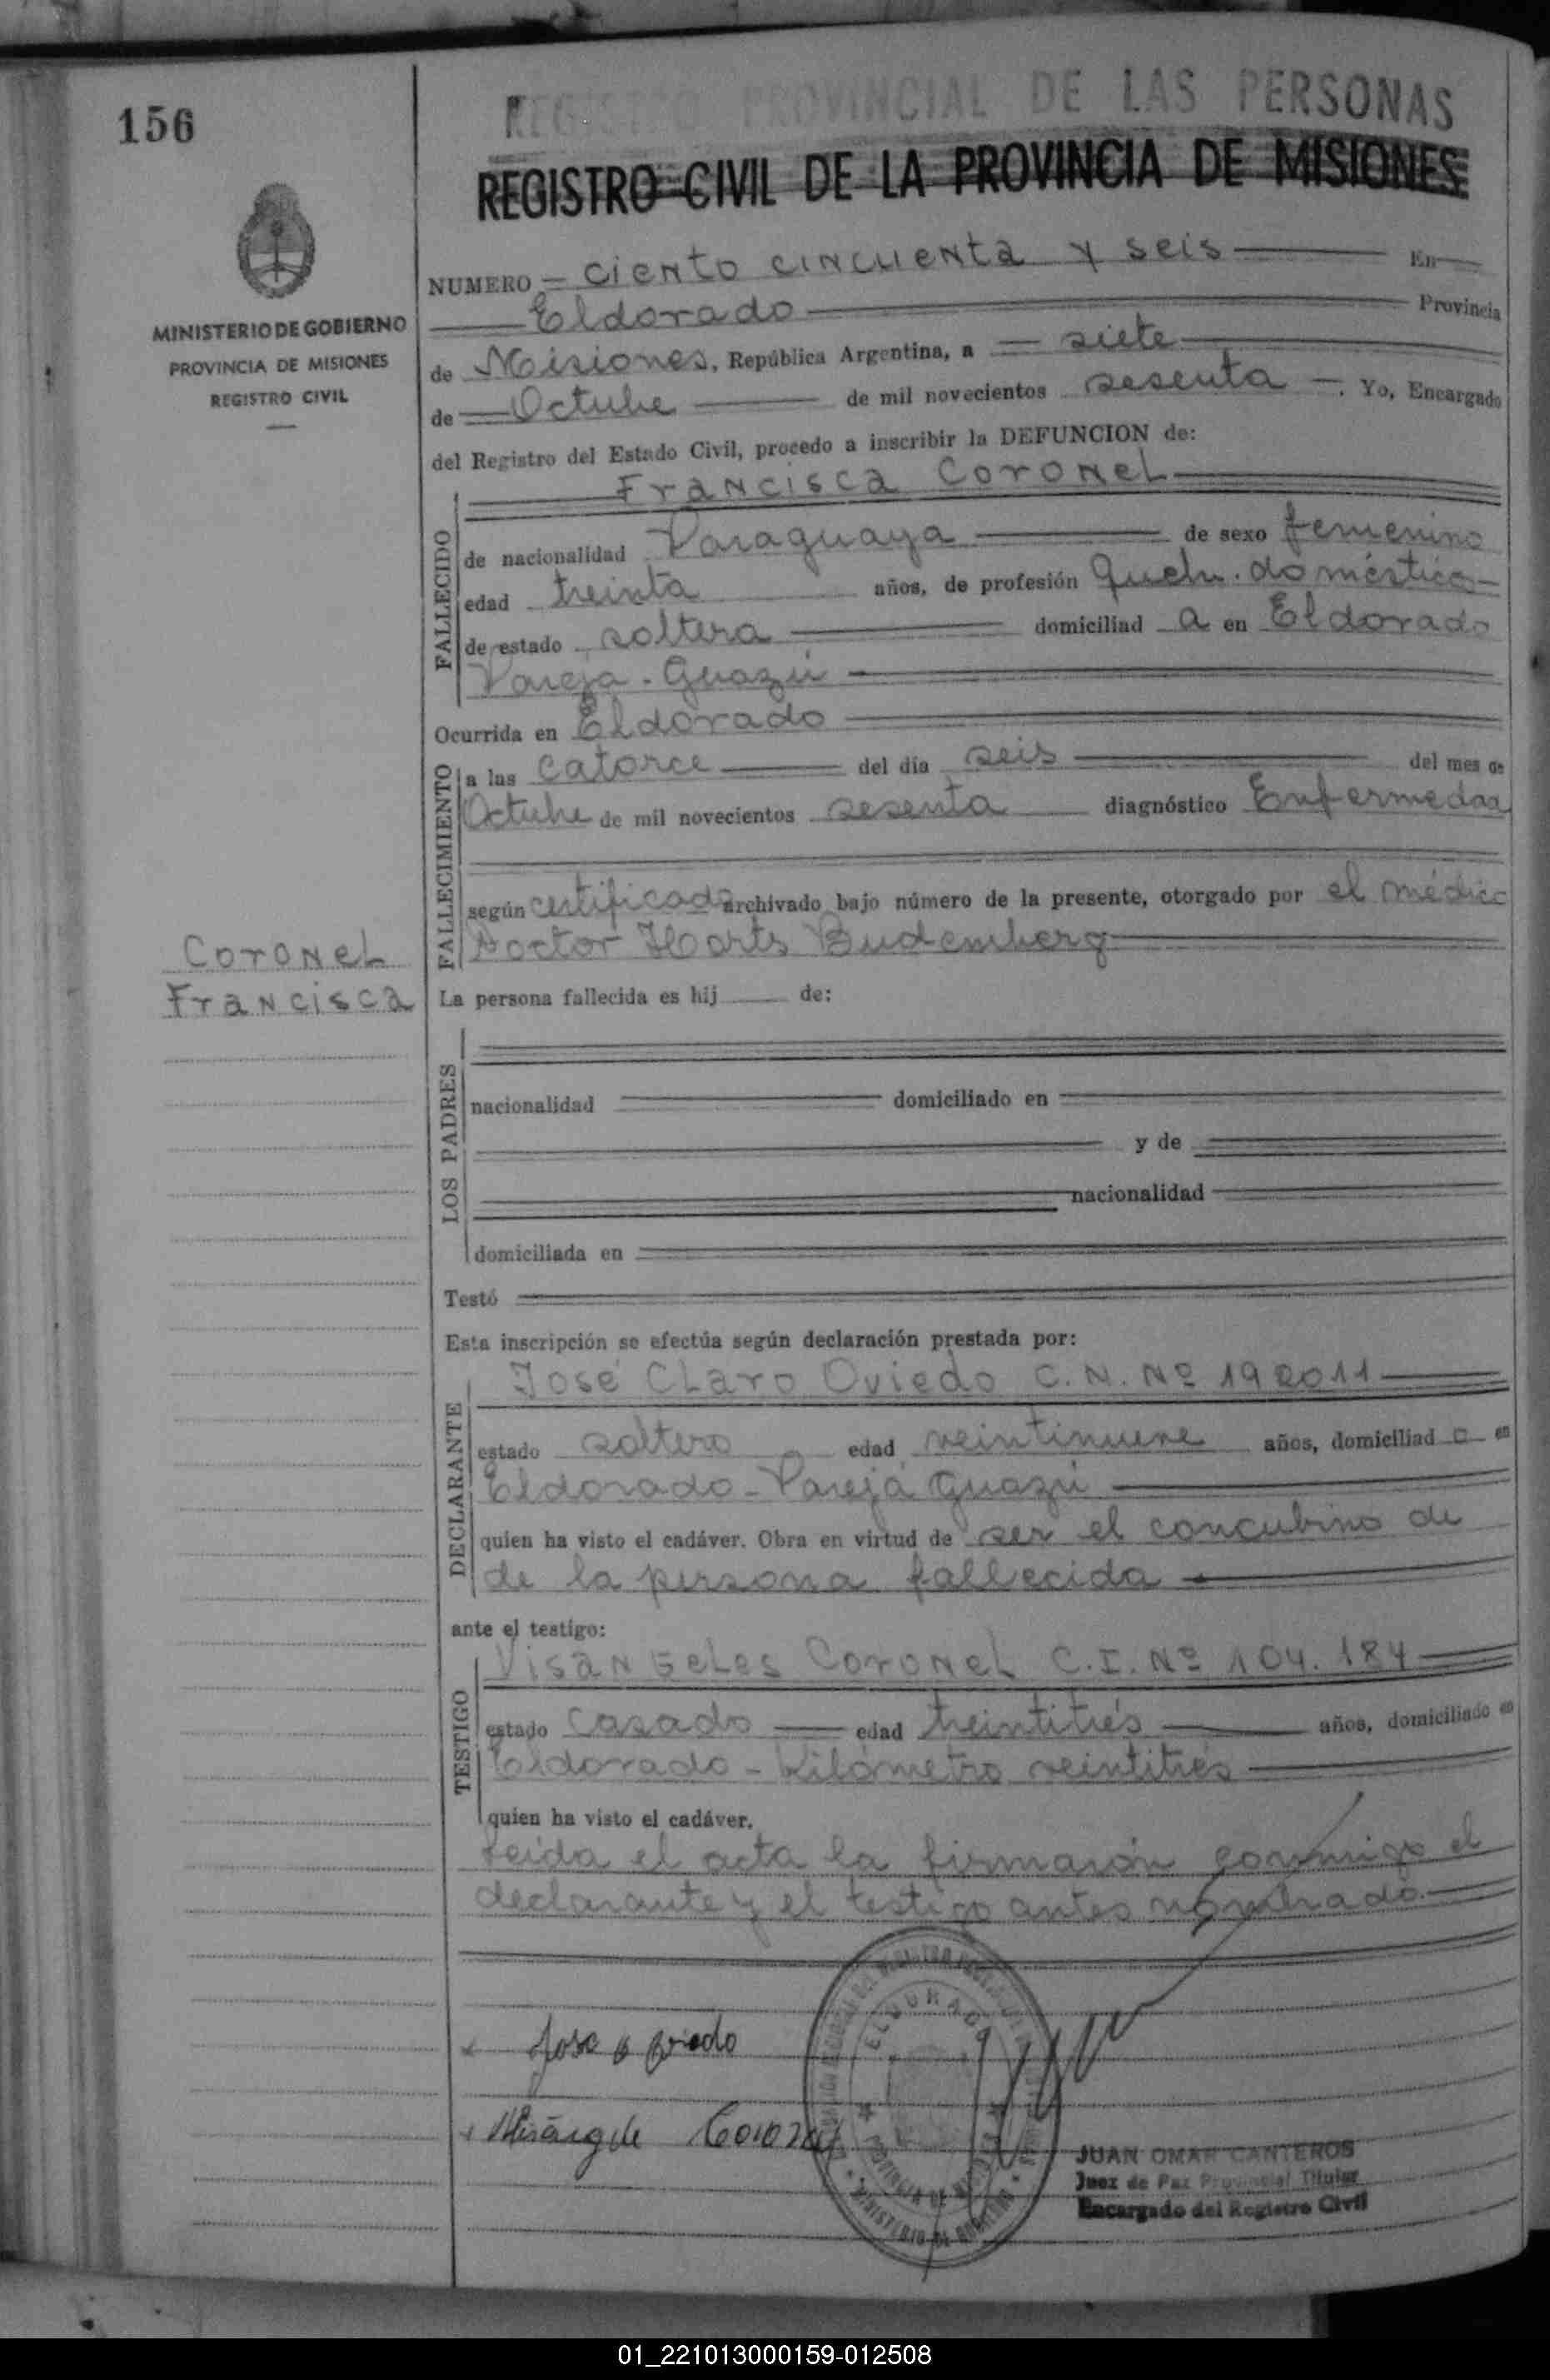 156
REGISTRO PROVINCIAL DE LAS PERSONAS
REGISTRO CIVIL DE LA PROVINCIA DE MISIONES
MINISTERIO DE GOBIERNO
PROVINCIA DE MISIONES
REGISTRO CIVIL
NUMERO ciento cincuenta y seis En
Eldorado Provincia
de Misiones, República Argentina, a siete
de Octubre de mil novecientos sesenta. Yo, Encargado
del Registro del Estado Civil, procedo a inscribir la DEFUNCION de:
Francisca Coronel
FALLECIDO
de nacionalidad Paraguaya de sexo femenino
edad treinta años, de profesión Queh. domésticos
de estado soltera domiciliad a en Eldorado
Pareja-Guazú
Ocurrida en Eldorado
FALLECIMIENTO
a las catorce del día seis del mes de
Octubre de mil novecientos sesenta diagnóstico Enfermedad
según certificado archivado bajo número de la presente, otorgado por el médico
Doctor Horts Budemberg
Coronel
Francisca
La persona fallecida es hij de:
LOS PADRES
nacionalidad domiciliado en
y de
nacionalidad
domiciliada en
Testó
Esta inscripción se efectúa según declaración prestada por:
DECLARANTE
José Claro Oviedo C.N. Nº 192011
estado soltero edad veintinueve años, domiciliad o en
Eldorado - Pareja Guazú
quien ha visto el cadáver. Obra en virtud de ser el concubino de
de la persona fallecida
ante el testigo:
TESTIGO
Visangeles Coronel C.I. Nº 104.184
estado casado edad treintitrés años, domiciliado en
Eldorado - Kilómetro veintitrés
quien ha visto el cadáver.
Leida el acta la firmarón conmigo el
declarante y el testigo antes nombrado.
Jose C Oviedo
Coronel
ELDORADO
PROVINCIA DE MISIONES
MINISTERIO DE GOBIERNO
JUAN OMAR CANTEROS
Juez de Paz Provincial Titular
Encargado del Registro Civil
01_221013000159-012508